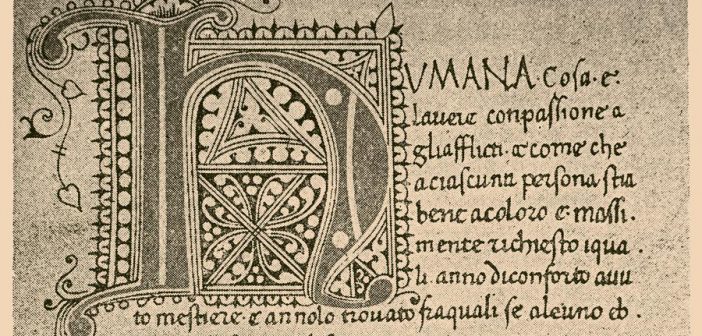 HVMANA. Coſa. e.
lauere conpaſſione a
gliafflicti. e come che
aciaſcuna perſona ſtia
bene acoloro e. maſſi.
mente richieſto iqua.
li. anno diconforto auu
to meſtiere. e annolo trouato fraquali ſe alcuno eb.